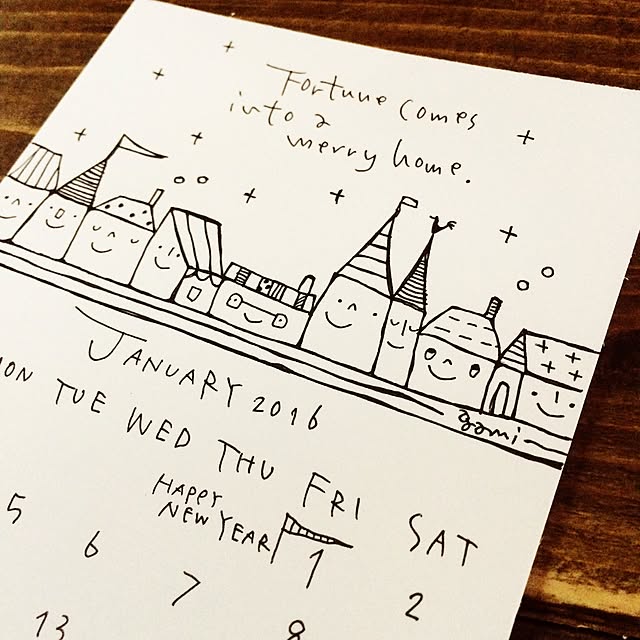 Fortune comes
into a
merry home.
gami
JANUARY 2016
TUE WED THU FRI SAT
HAPPY
NEW YEAR 1 2
5 6 7 8
13